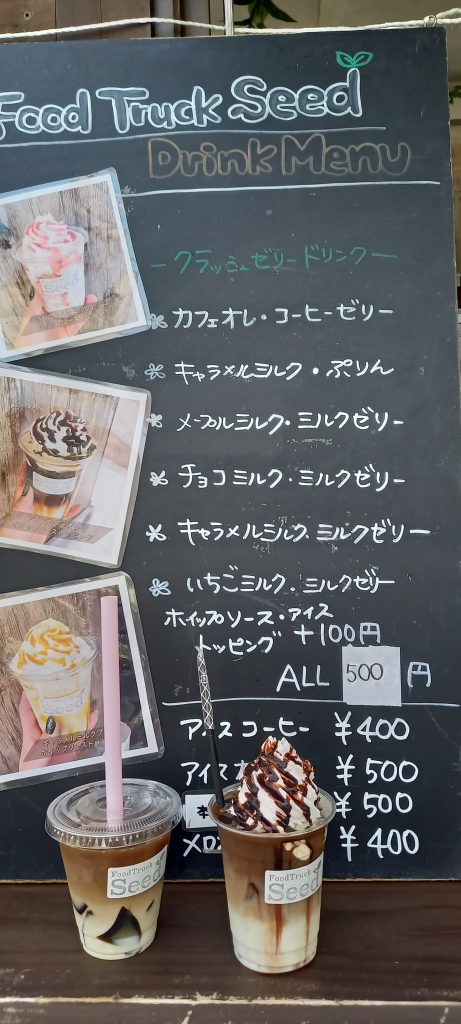 Food Truck Seed
Drink Menu
ークラッシュゼリードリンクー
カフェオレ・コーヒーゼリー
キャラメルミルク・ぷりん
メープルミルク・ミルクゼリー
チョコミルク・ミルクゼリー
キャラメルミルク.ミルクゼリー
いちごミルク.ミルクゼリー
ホイップソース・アイス
トッピング +100円
ALL 500 円
アイスコーヒー ¥400
アイス ¥500
¥500
メロ ¥400
Seed
Seed
FoodTruck
Seed
FoodTruck
Seed